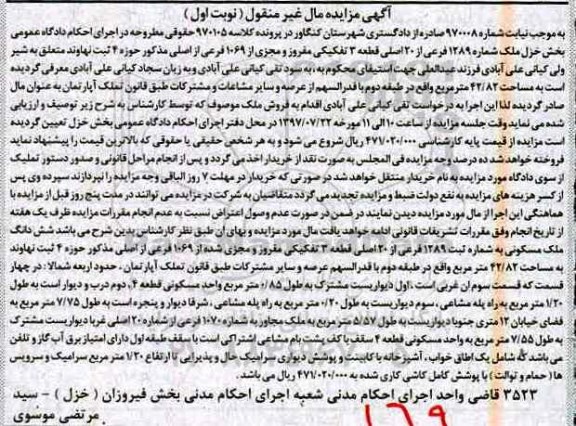 آگهی مزایده مال غیر منقول (نوبت اول)
به موجب نیابت شماره ۹۷۰۰۰۸ صادره از دادگستری شهرستان کنگاور در پرونده کلاسه ۹۷۰۱۰۵ حقوقی مطروحه در اجرای احکام دادگاه عمومی
بخش خزل ملک شماره ۱۲۸۹ فرعی از ۲۰ اصلی قطعه ۳ تفکیکی مفروز و مجزی از ۱۰۶۹ فرعی از اصلی مذکور حوزه ۴ ثبت نهاوند متعلق به شیر
ولی کیانی علی آبادی فرزند عبدالعلی جهت استیفای محکوم به، به سود تقی کیانی علی آبادی و به زیان سجاد کیانی علی آبادی معرفی گردیده
است به مساحت ۴۲/۸۲ مترمربع واقع در طبقه دوم با قدرالسهم از عرصه و سایر مشاعات و مشترکات طبق قانون تملک آپارتمان به عنوان مال
صادر گردیده لذا این اجرا به درخواست تقی کیانی علی آبادی اقدام به فروش ملک موصوف که توسط کارشناس به شرح زیر توصیف و ارزیابی
شده می نماید وقت جلسه مزایده از ساعت ۱۰ الی ۱۱ مورخه ۱۳۹۷/۰۷/۲۲ در محل دفتر اجرای احکام دادگاه عمومی بخش خزل تعیین گردیده
است مزایده از قیمت پایه کارشناسی ۴۷۱/۰۲۰/۰۰۰ ریال شروع می شود و به هر شخص حقیقی یا حقوقی که بالاترین قیمت را پیشنهاد نماید
فروخته خواهد شد ده درصد وجه مزایده فی المجلس به صورت نقد از خریدار اخذ می گردد و پس از انجام مراحل قانونی و صدور دستور تملیک
از سوی دادگاه مورد مزایده به نام خریدار منتقل خواهد شد در صورتی که خریدار در مهلت ۷ روز الباقی وجه مزایده را نپردازند سپرده وی پس
از کسر هزینه های مزایده به نفع دولت ضبط و مزایده تجدید می گردد متقاضیان به شرکت در مزایده می توانند در مدت پنج روز قبل از مزایده با
هماهنگی این اجرا از مال مورد مزایده دیدن نمایند در ضمن در صورت عدم وصول اعتراض نسبت به عدم انجام مقررات مزایده ظرف یک هفته
از تاریخ انجام وفق مقررات تشریفات قانونی ادامه خواهد یافت مال مورد مزایده و بهای ان طبق نظر کارشناس بدین شرح می باشد شش دانگ
ملک مسکونی به شماره ثبت ۱۲۸۹ فرعی از ۲۰ اصلی قطعه ۳ تفکیکی مفروز و مجزی شده از ۱۰۶۹ فرعی از اصلی مذکور حوزه ۴ ثبت نهاوند
به مساحت ۴۲/۸۲ متر مربع واقع در طبقه دوم با قدرالسهم عرصه و سایر مشترکات طبق قانون تملک آپارتمان ، حدود اربعه شمالا : در چهار
قسمت که قسمت سوم ان غربی است ، اول دیواریست مشترک به طول ۰/۸۵ متر مربع واحد مسکونی قطعه ۴ ، دوم درب و دیوار است به طول
۱/۲۰ متر مربع به راه پله مشاعی ، سوم دیواریست به طول ۰/۲۰ متر مربع به راه پله مشاعی ، شرقا دیوار و پنجره است به طول ۷/۷۵ متر مربع به
فضای خیابان ۱۲ متری جنوبا دیواریست به طول ۵/۵۷ متر مربع به ملک مجاور به شماره ۱۰۷۰ فرعی از شماره ۲۰ اصلی غربا دیواریست مشترک
به طول ۷/۵۵ متر مربع به واحد مسکونی قطعه ۴ سقف با کف پشت بام مشاعی اشتراکی است با سقف طبقه اول دارای امتیاز برق آب گاز و تلفن
می باشد که شامل یک اطاق خواب ، آشپزخانه با کابینت و پوشش دیواری سرامیک حال و پذیرایی تا ارتفاع ۱/۲۰ متر مربع سرامیک و سرویس
ها ( حمام و توالت ) با پوشش کامل کاشی کاری شده به ۴۷۱/۰۲۰/۰۰۰ ریال می باشد .
۳۵۲۳ قاضی واحد اجرای احکام مدنی شعبه اجرای احکام مدنی بخش فیروزان ( خزل ) – سید
مرتضی موسوی
۱۶۹